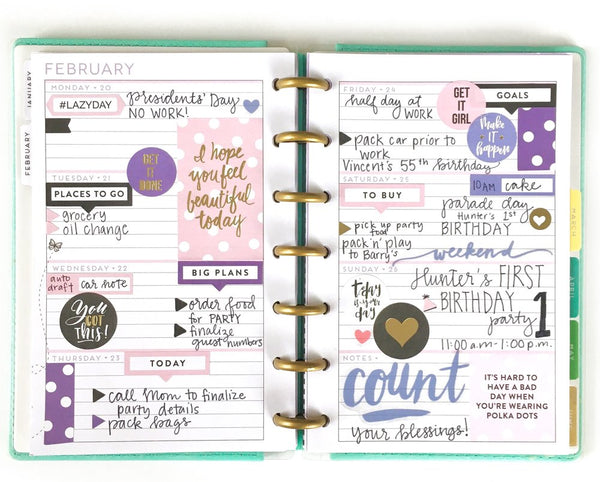 FEBRUARY
JANUARY
FEBRUARY
MONDAY • 20
#LAZYDAY
Presidents' Day
NO WORK!
GET
IT
DONE
I hope
you feel
beautiful
today
TUESDAY • 21
PLACES TO GO
grocery
oil change
WEDNESDAY • 22
auto
draft
car note
You
GOT
THIS!
BIG PLANS
order food
for PARTY
finalize
guest numbers
THURSDAY • 23
TODAY
call Mom to finalize
party details
pack bags
FRIDAY • 24
half day at
work
GET
IT
GIRL
GOALS
Make
IT
happen
pack car prior to
work
Vincent's 55th birthday
SATURDAY • 25
TO BUY
10AM
cake
parade day
Hunter's 1st
BIRTHDAY
pick up party
food
pack 'n' play
to Barry's
weekend
SUNDAY • 26
today
is your
day
Hunter's FIRST
BIRTHDAY
party
1
11:00 am - 1:00 p.m.
NOTES
count
your blessings!
IT'S HARD TO
HAVE A BAD
DAY WHEN
YOU'RE WEARING
POLKA DOTS
MARCH
APRIL
MAY